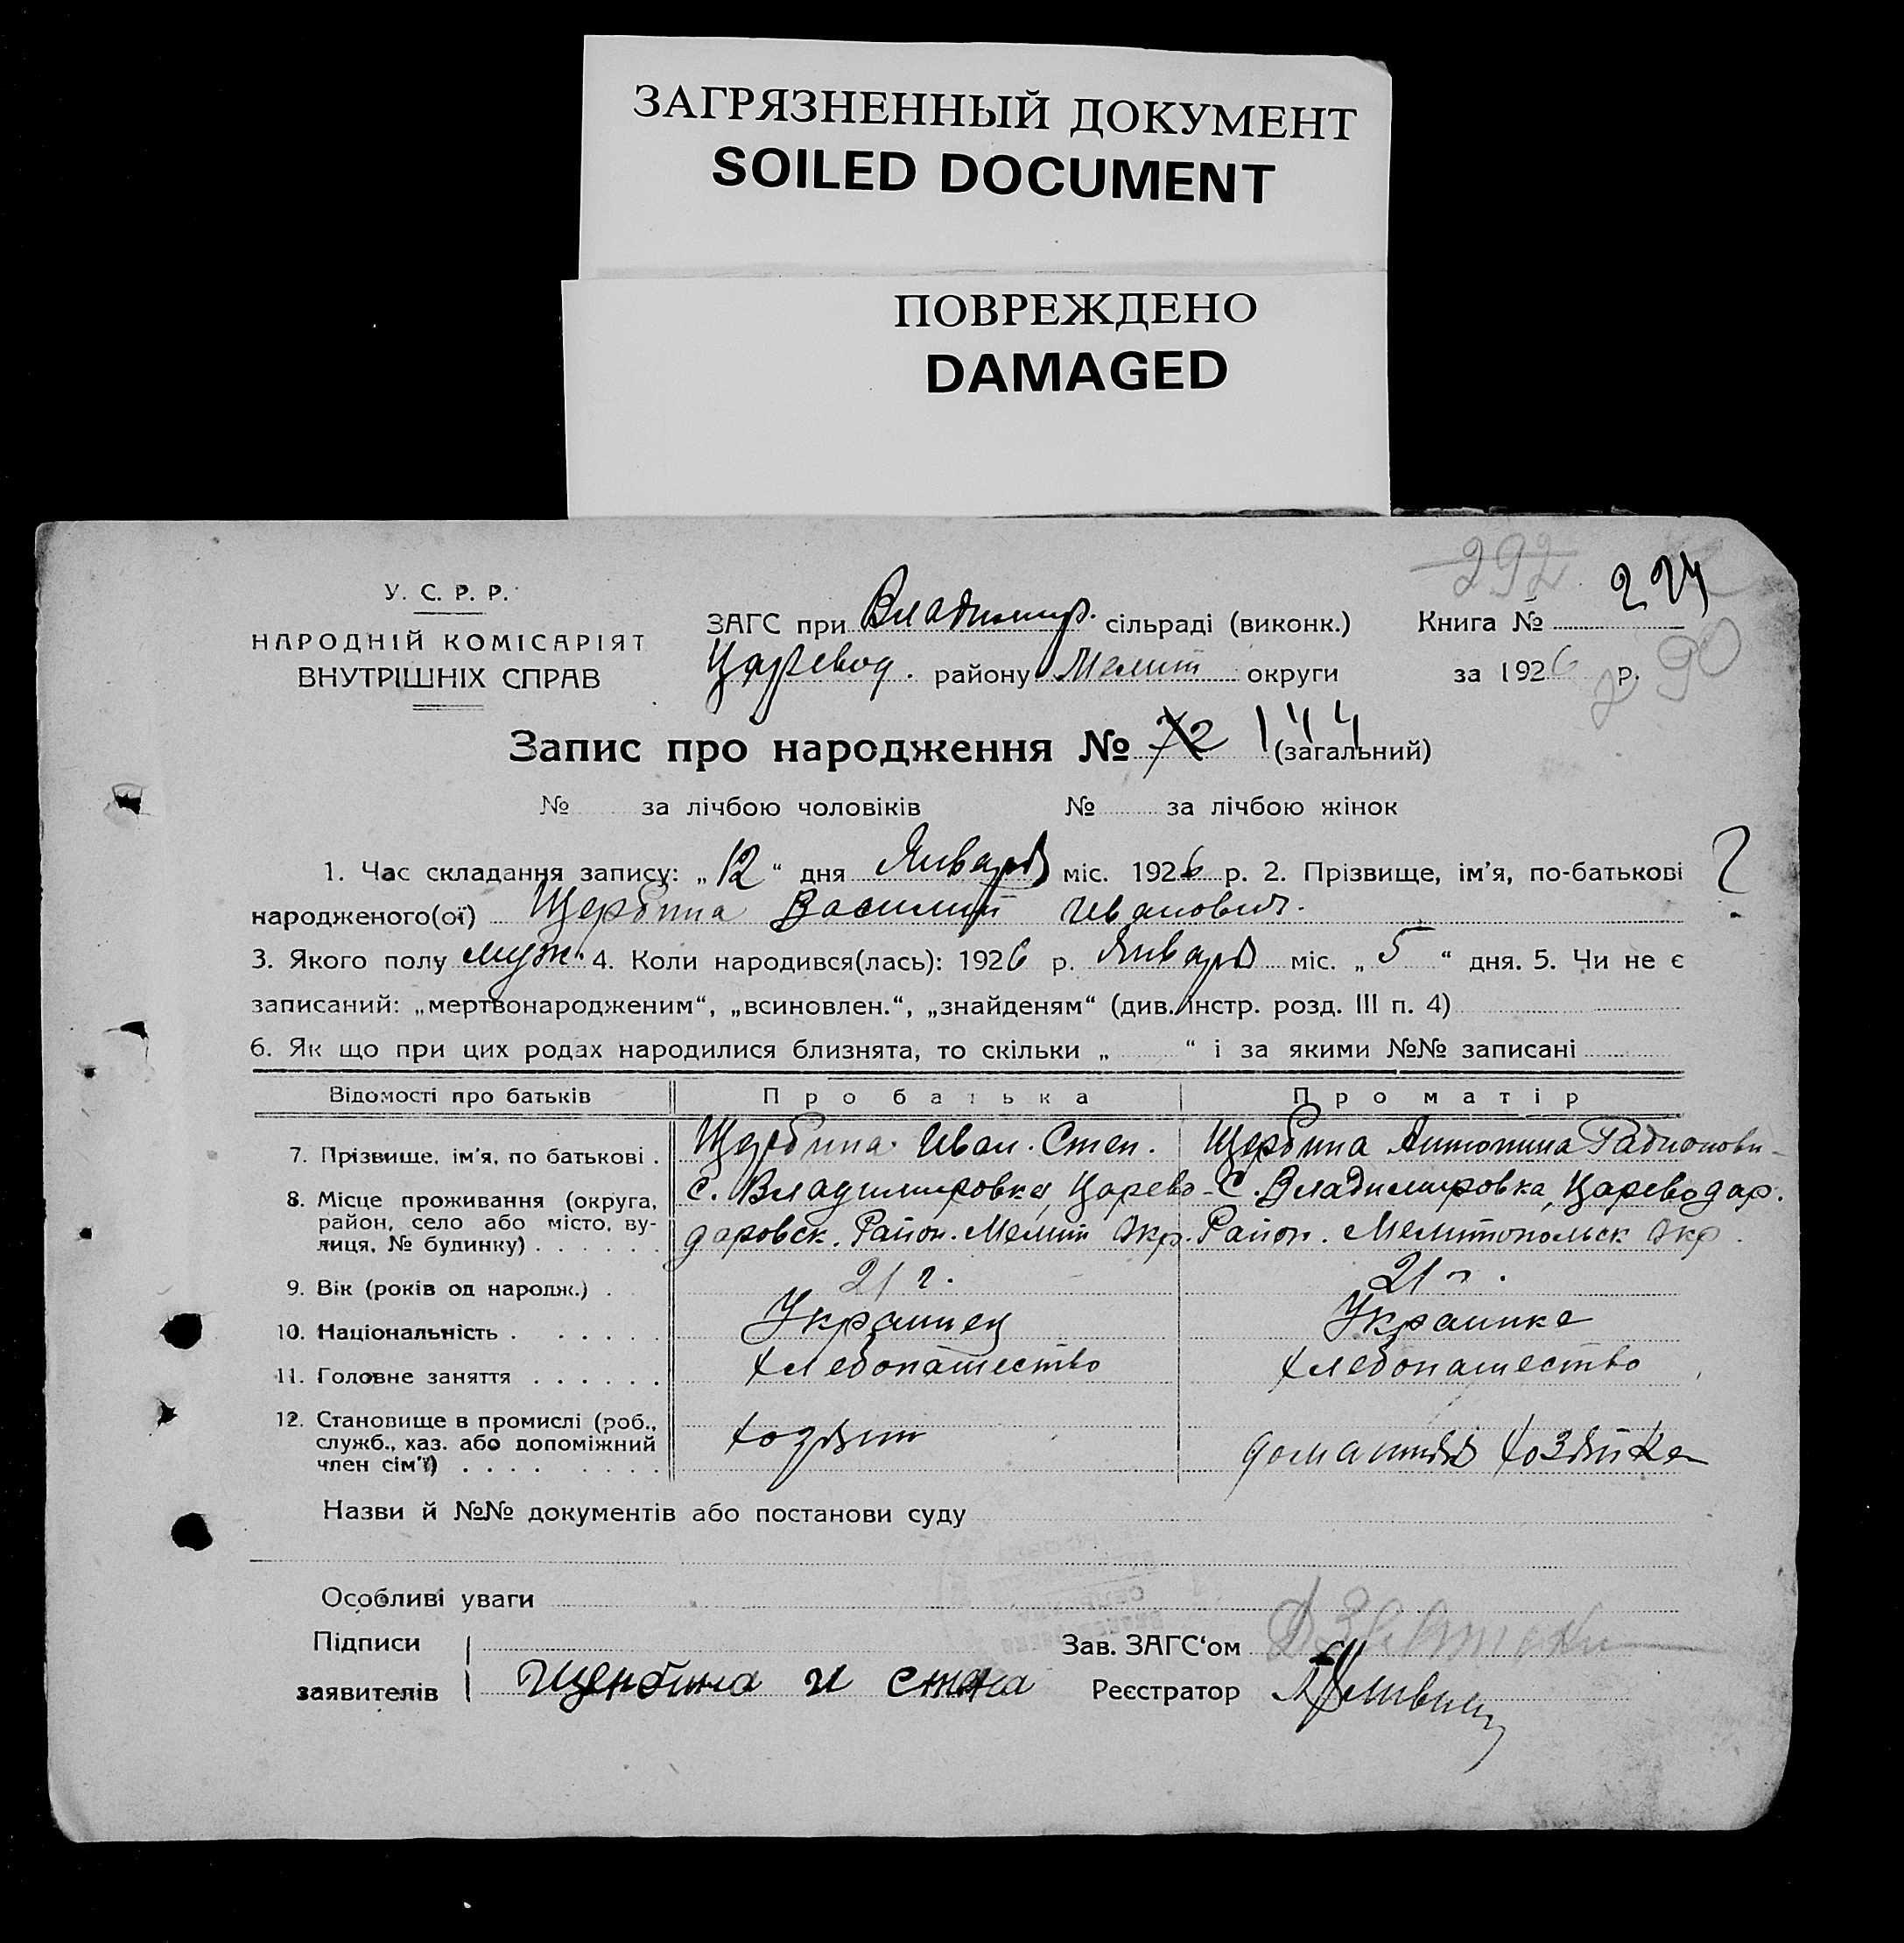 ЗАГРЯЗНЕННЫЙ ДОКУМЕНТ
SOILED DOCUMENT
ПОВРЕЖДЕНО
DAMAGED
292
224
У. С. Р. Р.
НАРОДНІЙ КОМІСАРІЯТ
ВНУТРІШНІХ СПРАВ
ЗАГС при Владимир. сільраді (виконк.) Книга №
Царевод. району Мелит округи за 1926 р.
90
Запис про народження № 72 144 (загальний)
№ за лічбою чоловіків № за лічбою жінок
1. Час складання запису: „12“ дня Января міс. 1926 р. 2. Прізвище, ім'я, по-батькові ?
народженого(ої) Щербина Василий Иванович.
3. Якого полу муж. 4. Коли народився(лась): 1926 р. Января міс. „5“ дня. 5. Чи не є
записаний: „мертвонародженим“, „всиновлен.“, „знайденям“ (див. інстр. розд. III п. 4)
6. Як що при цих родах народилися близнята, то скільки „ “ і за якими №№ записані
Відомості про батьків Про батька Про матір
7. Прізвище, ім'я, по батькові . Щербина Иван. Степ. Щербина Антонина Радионовн-
8. Місце проживання (округа, с. Владимировка, Царево- С. Владимировка, Цареводар.
район, село або місто, ву-
лиця, № будинку) . . . . . . даровск. Район. Мелит Окр. Район. Мелитопольск Окр.
9. Вік (років од народж.) . 21 г. 21 г.
10. Національність . . . . . . Украинец Украинка
11. Головне заняття . . . . . . Хлебопашество Хлебопашество
12. Становище в промислі (роб., служб., хаз. або допоміжний член сім'ї) . . . . . . . . Хозяин домашняя хозяйка
Назви й №№ документів або постанови суду
Особливі уваги
Підписи Зав. ЗАГС‘ом
заявителів Щербина И Реєстратор